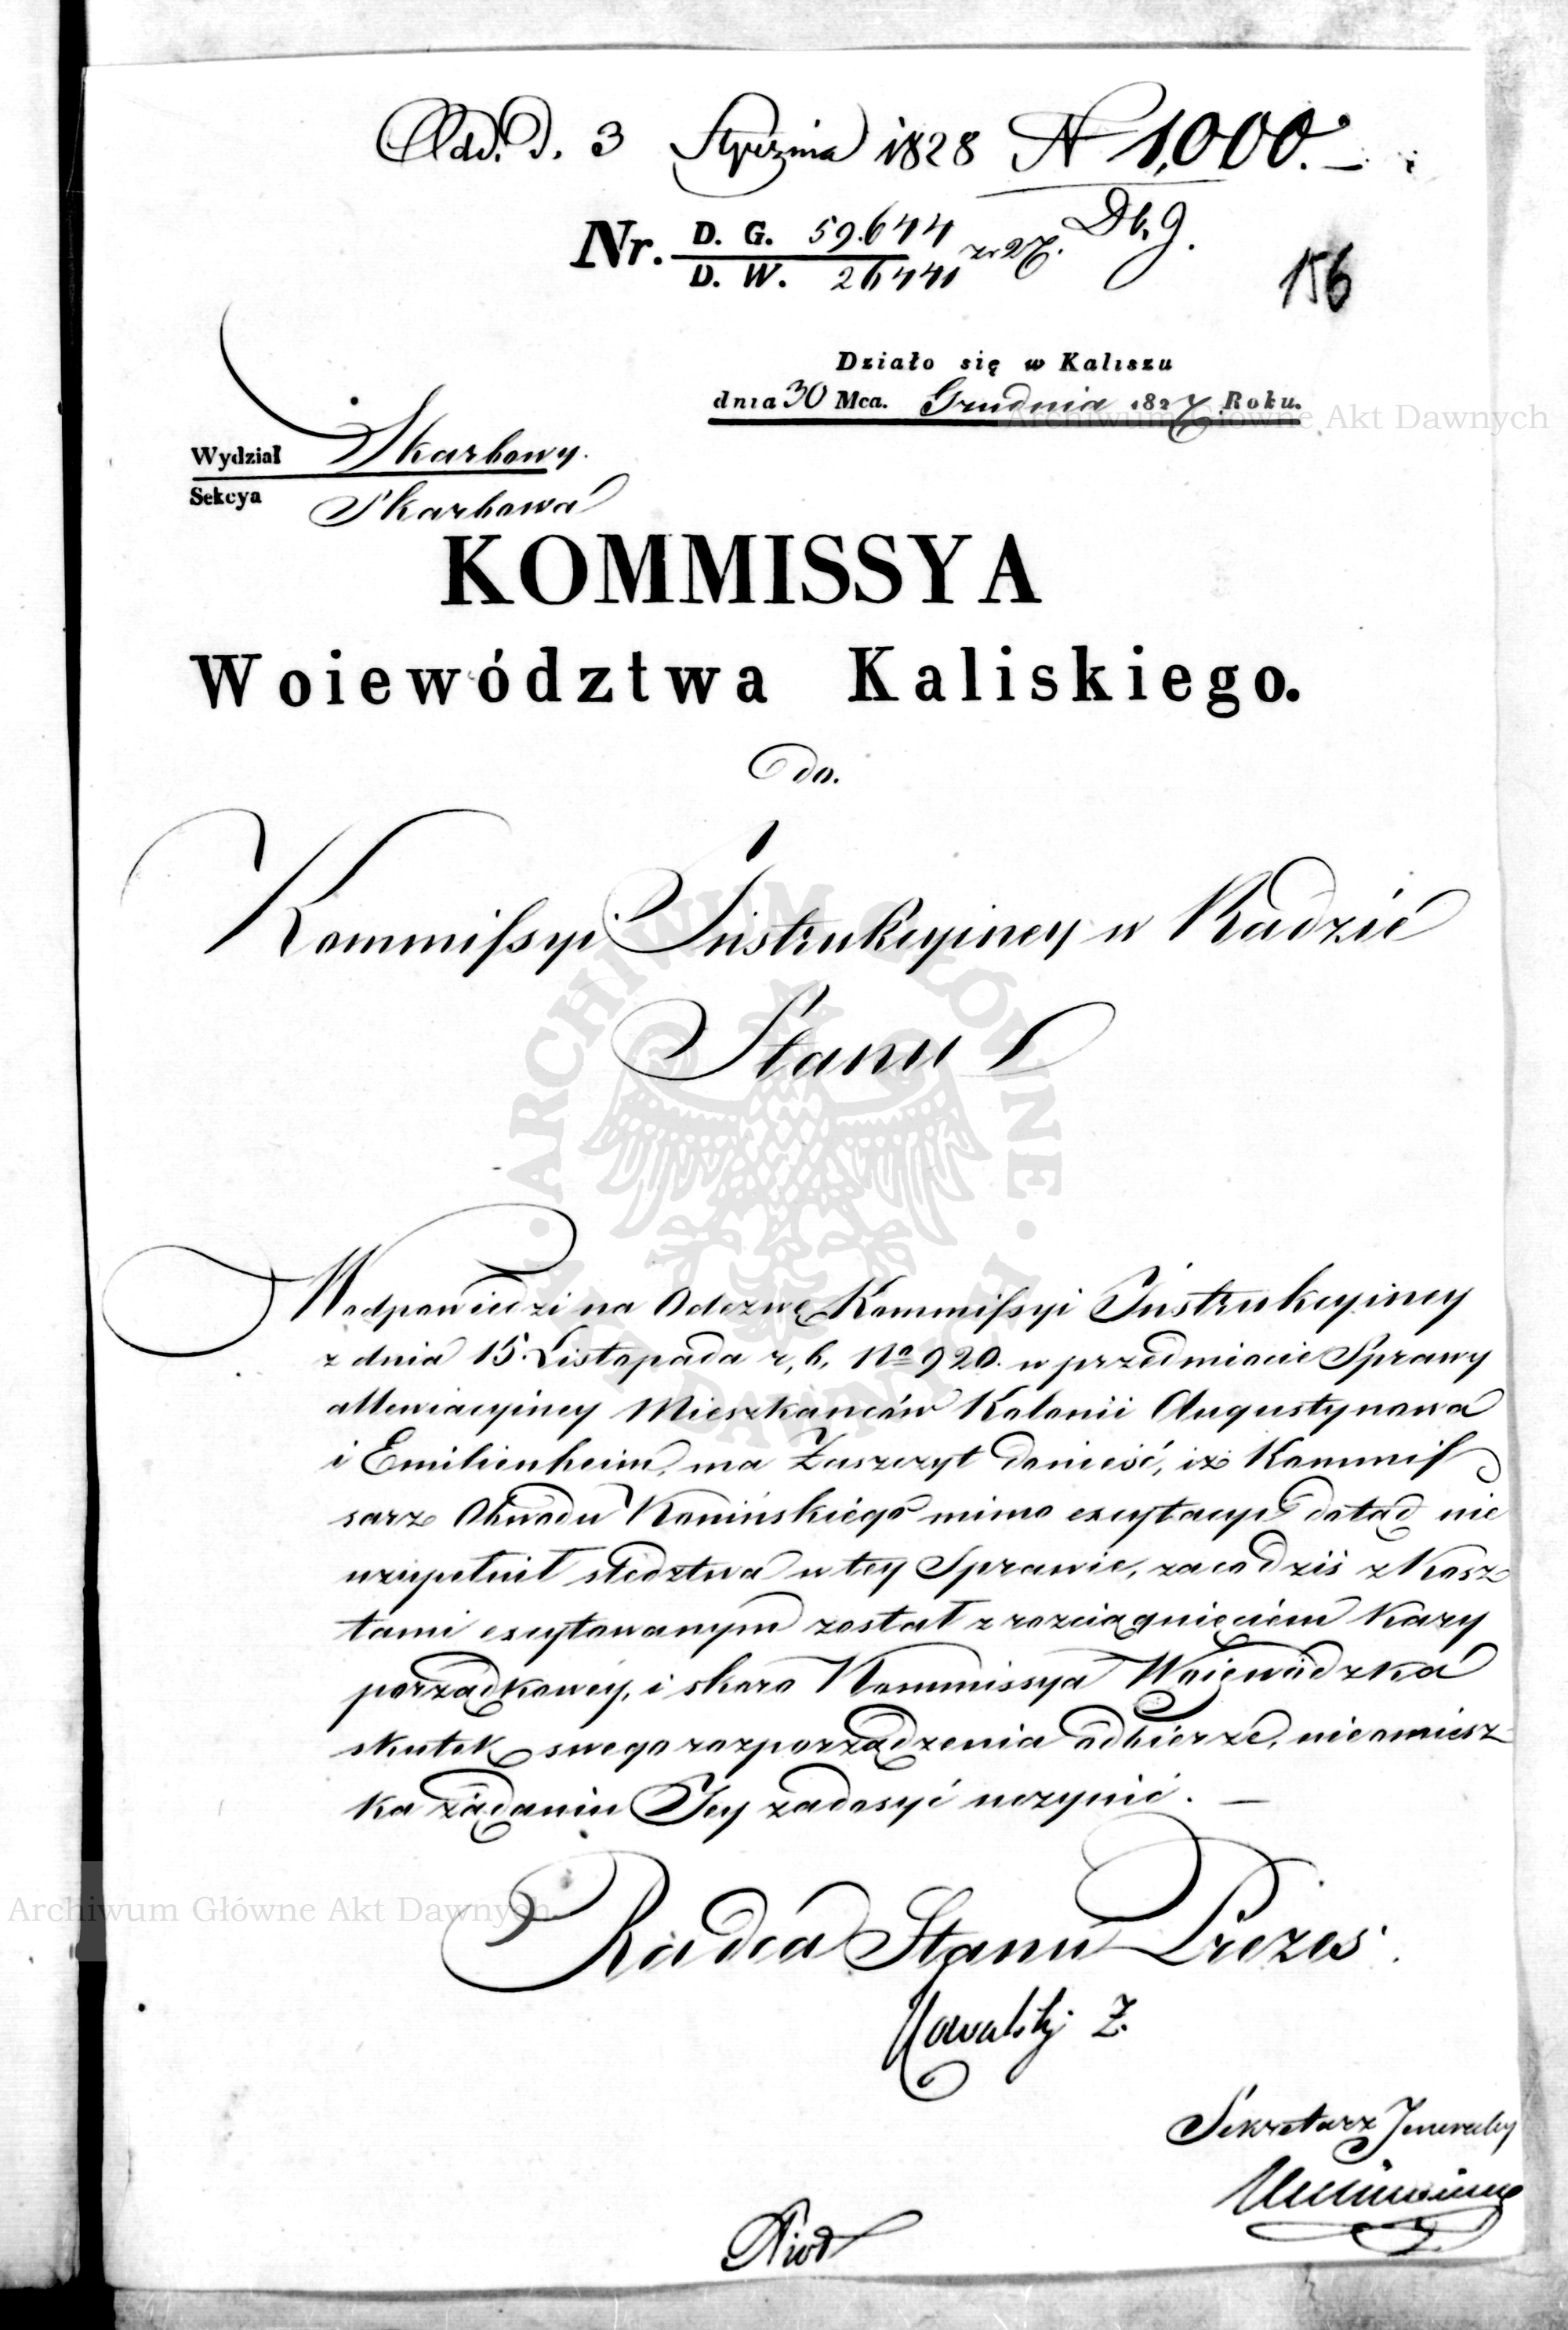 Odd. D. 3 Stycznia 1828 N 1,000.
Nr. D. G. 59.644 z r 27. Db. g.
D. W. 26440
156
Działo się w Kaliszu
dnia 30 Mca. Grudnia 1827 Roku.
Wydział Skarbowy.
Sekcya Skarbowa
KOMMISSYA
Woiewództwa Kaliskiego.
Do.
Kommissyi Instrukcyiney w Radzie
Stanu
W odpowiedzi na Odezwę Kommissyi Instrukcyiney
z dnia 15. Listopada r. b. No 920. w przedmiocie Sprawy
allewiacyiney Mieszkańców Kolonii Augustynowa
i Emilienheim, ma Zaszczyt donieść, iż Kommis
sarz Obwodu Konińskiégo mimo excytacyi dotąd nie
uzupełnił śledztwa w tey Sprawie, za co dziś z kosz
tami excytowanym został z rozciągnięciem kary
porządkowéy, i skoro Kommissya Woiewódzka
skutek swego rozporządzenia odbierze, nieomiesz
ka żądaniu Jey zadosyć uczynić. —
Radca Stanu Prezes.
Kowalsky Z.
Sekretarz Jeneralny
ARCHIWUM GŁÓWNE AKT DAWNYCH
Archiwum Główne Akt Dawnych
Archiwum Główne Akt Dawnych